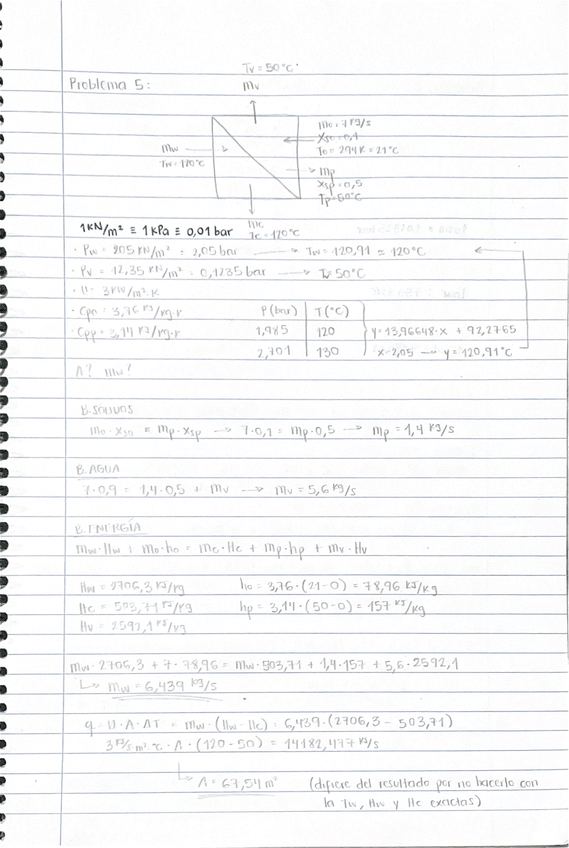 Tv = 50°C
Problema 5:
mv
mo = 7 kg/s
xso = 0,1
To = 294K = 21°C
mw
Tw = 120°C
mp
xsp = 0,5
Tp = 50°C
mc
Tc = 120°C
1 KN/m² ≡ 1 kPa ≡ 0,01 bar
· Pw = 205 KN/m² = 2,05 bar → Tw = 120,91 ≈ 120°C
· Pv = 12,35 KN/m² = 0,1235 bar → Tv = 50°C
· U = 3 KW/m²·K
· Cpo = 3,76 KJ/kg·K
· Cpp = 3,14 KJ/kg·K
P (bar) T (°C)
1,985 120
2,701 130
y = 13,96648·x + 92,2765
x = 2,05 → y = 120,91°C
A? mw?
B. SÓLIDOS
mo·xso = mp·xsp → 7·0,1 = mp·0,5 → mp = 1,4 kg/s
B. AGUA
7·0,9 = 1,4·0,5 + mv → mv = 5,6 kg/s
B. ENERGÍA
mw·Hw + mo·ho = mc·Hc + mp·hp + mv·Hv
Hw = 2706,3 KJ/kg ho = 3,76·(21-0) = 78,96 KJ/kg
Hc = 503,71 KJ/kg hp = 3,14·(50-0) = 157 KJ/kg
Hv = 2592,1 KJ/kg
mw·2706,3 + 7·78,96 = mw·503,71 + 1,4·157 + 5,6·2592,1
↳ mw = 6,439 kg/s
q = U·A·ΔT = mw·(Hw - Hc) = 6,439·(2706,3 - 503,71)
3 KJ/s·m²·°C · A · (120 - 50) = 14182,477 KJ/s
↳ A = 67,54 m² (difiere del resultado por no hacerlo con
la Tw, Hw y Hc exactas)